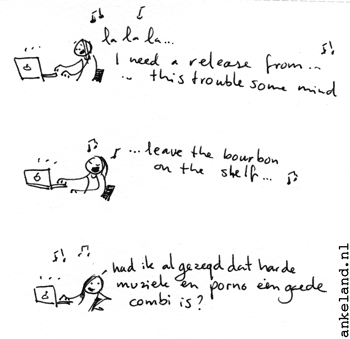 la la la...
I need a release from...
... this trouble some mind
...leave the bourbon
on the shelf...
had ik al gezegd dat harde
muziek en porno een goede
combi is?
ankeland.nl